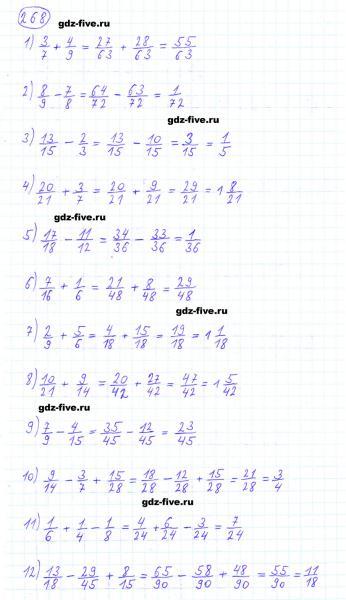 268
gdz-five.ru
1) 3/7 + 4/9 = 27/63 + 28/63 = 55/63
2) 8/9 - 7/8 = 64/72 - 63/72 = 1/72
gdz-five.ru
3) 13/15 - 2/3 = 13/15 - 10/15 = 3/15 = 1/5
4) 20/21 + 3/7 = 20/21 + 9/21 = 29/21 = 1 8/21
gdz-five.ru
5) 17/18 - 11/12 = 34/36 - 33/36 = 1/36
6) 7/16 + 1/6 = 21/48 + 8/48 = 29/48
gdz-five.ru
7) 2/9 + 5/6 = 4/18 + 15/18 = 19/18 = 1 1/18
8) 10/21 + 9/14 = 20/42 + 27/42 = 47/42 = 1 5/42
gdz-five.ru
9) 7/9 - 4/15 = 35/45 - 12/45 = 23/45
10) 9/14 - 3/7 + 15/28 = 18/28 - 12/28 + 15/28 = 21/28 = 3/4
gdz-five.ru
11) 1/6 + 1/4 - 1/8 = 4/24 + 6/24 - 3/24 = 7/24
12) 13/18 - 29/45 + 8/15 = 65/90 - 58/90 + 48/90 = 55/90 = 11/18